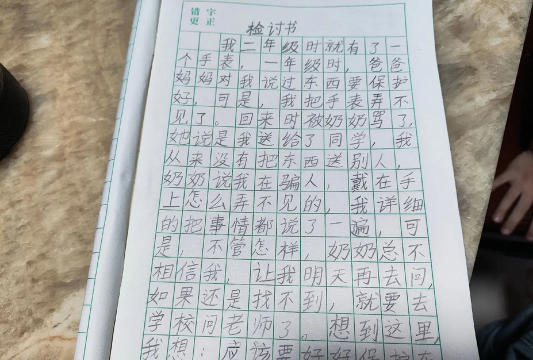 错字
更正
检讨书
我二年级时就有了一
个手表，一年级时，爸爸
妈妈对我说过东西要保护
好，可是，我把手表弄不
见了。回来时被奶奶骂了，
她说是我送给了同学，我
从来没有把东西送别人，
奶奶说我在骗人，戴在手
上怎么弄不见的，我详细
的把事情都说了一遍，可
是，不管怎样，奶奶总不
相信我，让我明天再去问，
如果还是找不到，就要去
学校问老师了。想到这里，
我想：应该要好好保